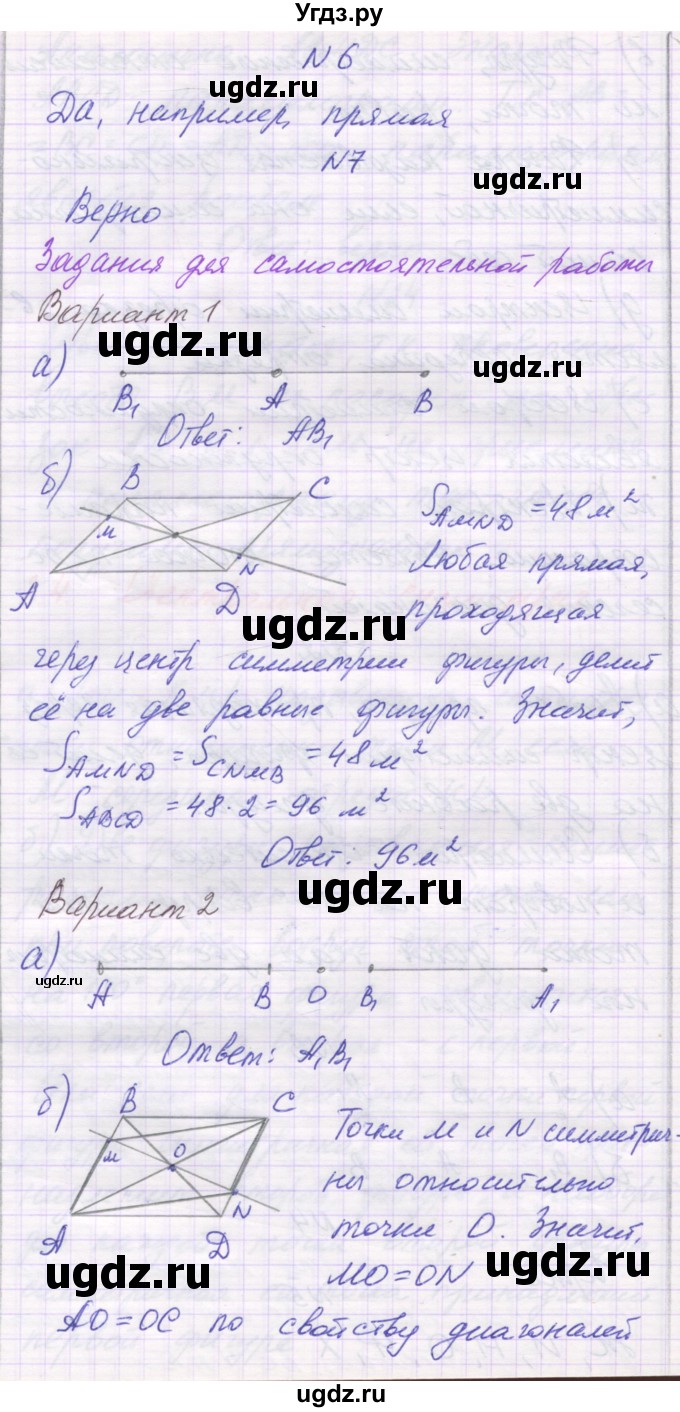 Угдз.ру
N 6
ugdz.ru
Да, например, прямая
N7
ugdz.ru
Верно
Задания для самостоятельной работы
Вариант 1
ugdz.ru
ugdz.ru
а)
B₁ A B
Ответ: AB₁
б)
B C
M
N
A D
S_AMND = 48 м²
Любая прямая,
ugdz.ru
проходящая
через центр симметрии фигуры, делит
её на две равные фигуры. Значит,
S_AMND = S_CNMB = 48 м²
S_ABCD = 48 · 2 = 96 м²
Ответ: 96 м²
ugdz.ru
Вариант 2
а)
ugdz.ru
A B O B₁ A₁
ugdz.ru
Ответ: A₁B₁
б)
B C
M O
N
A D
Точки M и N симметрич-
ны относительно
точки O. Значит,
ugdz.ru
ugdz.ru
MO = ON
AO = OC по свойству диагоналей
ugdz.ru